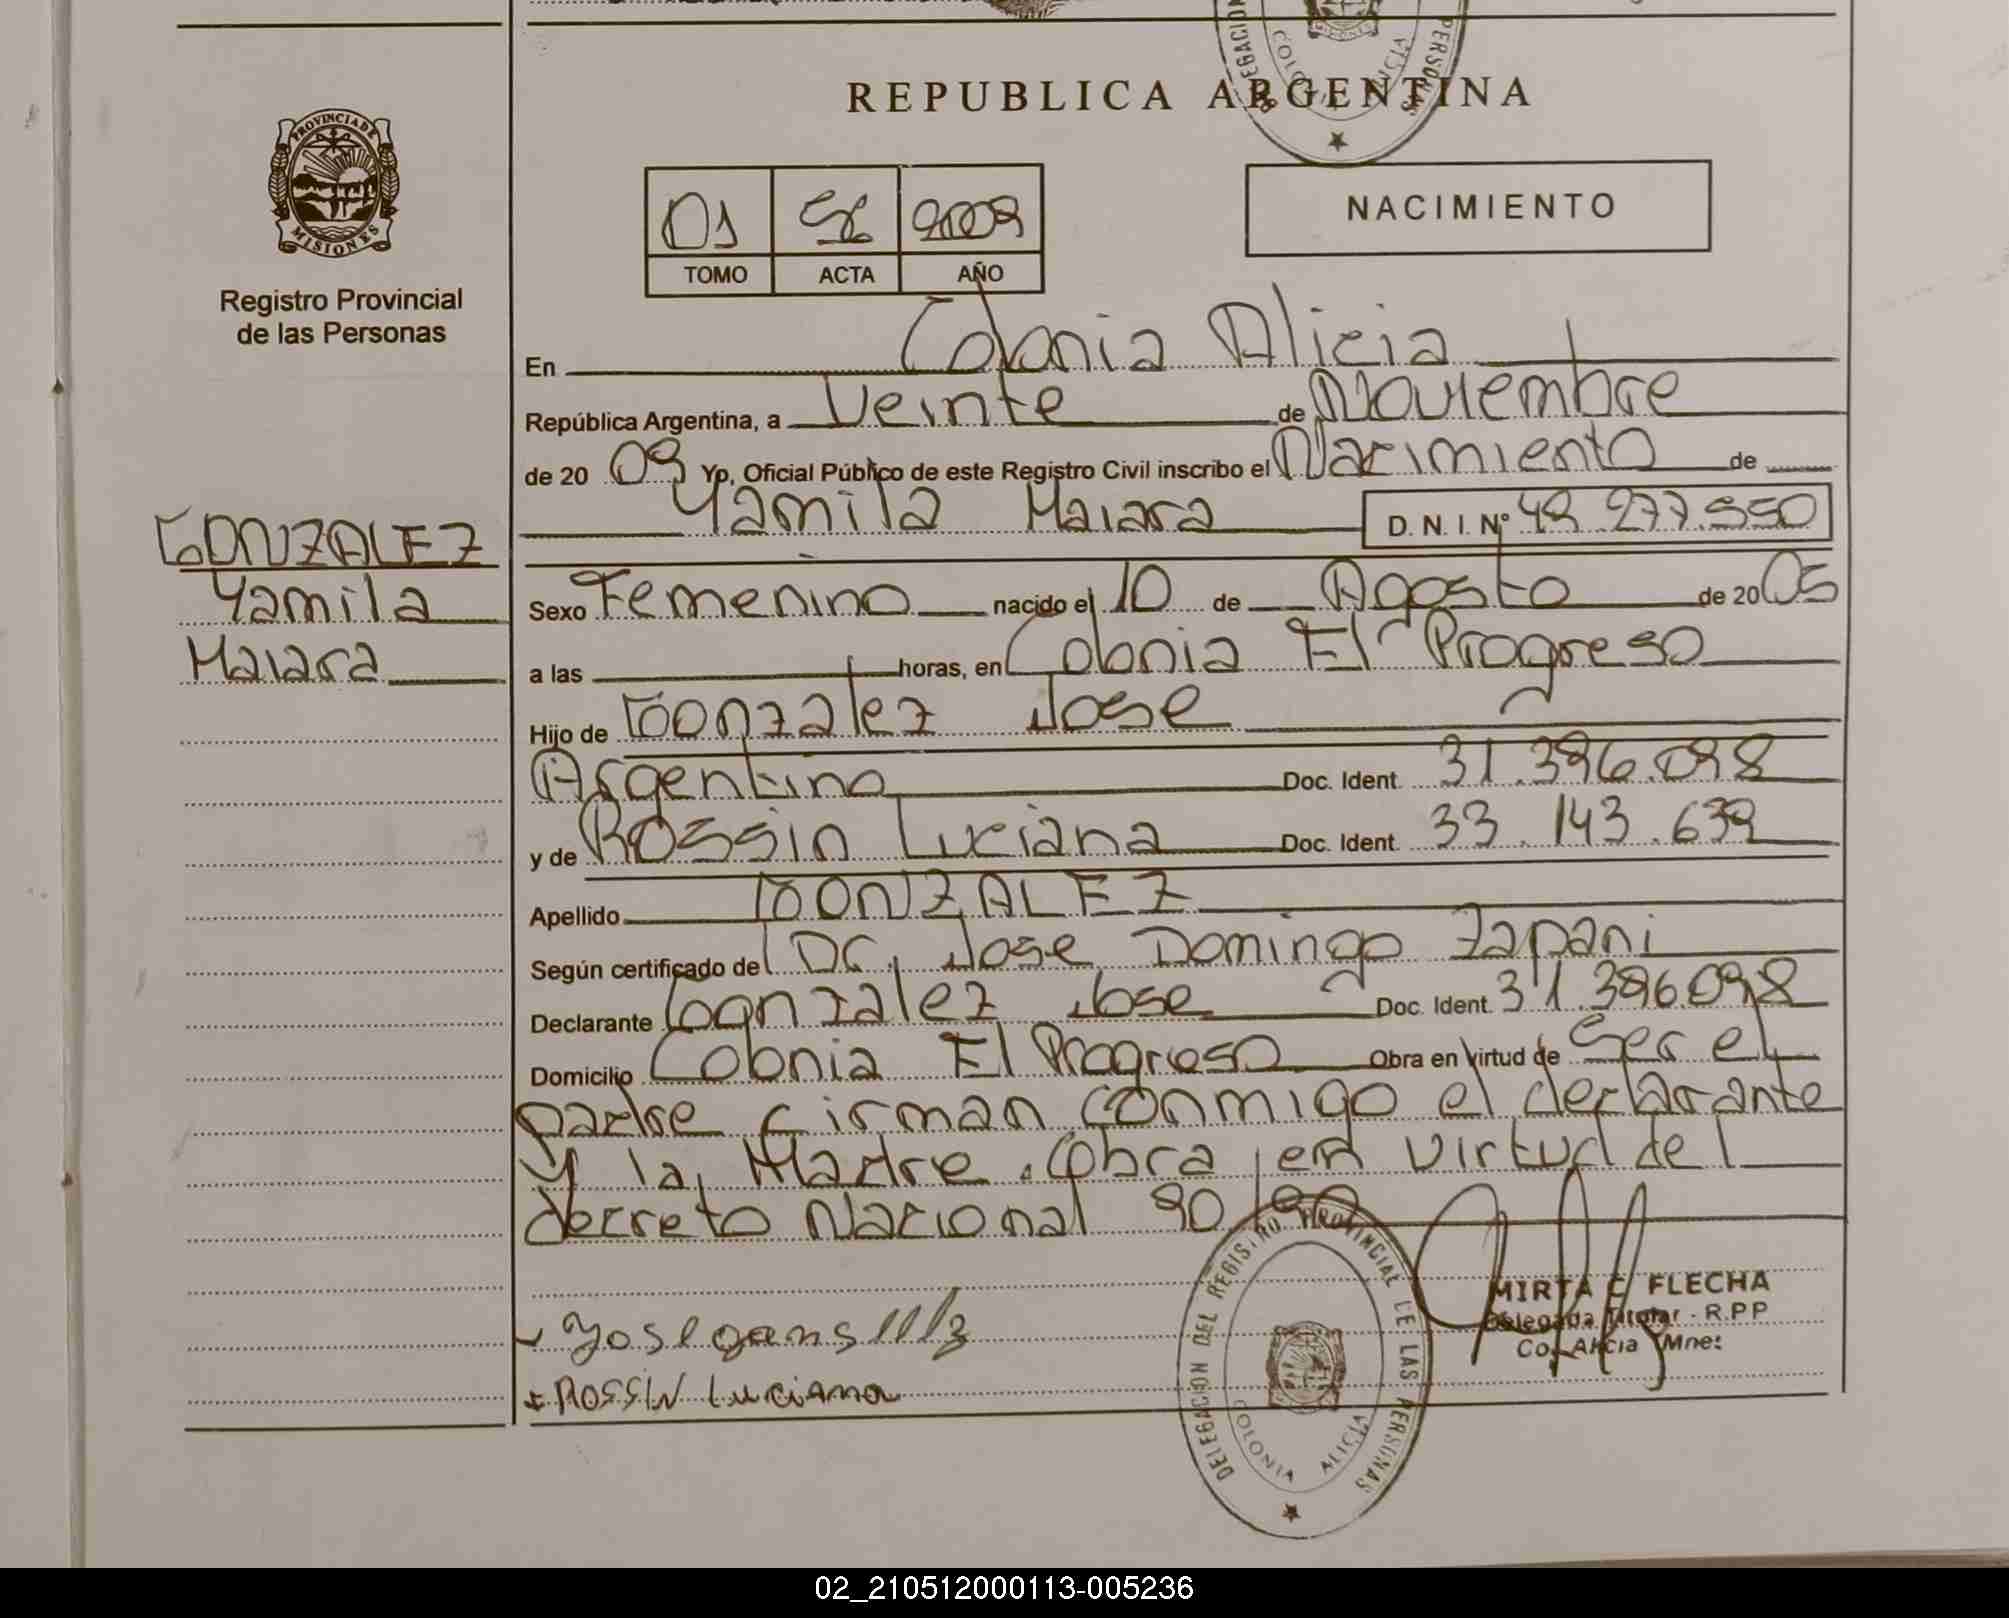 REPUBLICA ARGENTINA
DELEGACION
PERSONAS
COLONIA ALICIA
PROVINCIA DE
MISIONES
Registro Provincial
de las Personas
01 56 2009
TOMO ACTA AÑO
NACIMIENTO
En Colonia Alicia
República Argentina, a Veinte de Noviembre
de 2009 Yo, Oficial Público de este Registro Civil inscribo el Nacimiento de
Yamila Maiara D. N. I. Nº 49.277.550
GONZALEZ
Yamila
Maiara
Sexo Femenino nacido el 10 de Agosto de 2005
a las horas, en Colonia El Progreso
Hijo de Gonzalez Jose
Argentino Doc. Ident. 31.396.098
y de Rossin Luciana Doc. Ident. 33.143.639
Apellido GONZALEZ
Según certificado del Dr. Jose Domingo Zapani
Declarante Gonzalez Jose Doc. Ident. 31.396.098
Domicilio Colonia El Progreso Obra en virtud de Ser el
padre firman conmigo el declarante
y la Madre. Obra en virtud del
decreto Nacional 90/09
MIRTA C FLECHA
Delegada Titular - R.P.P
Col. Alicia Mnes
ROSSIN Luciana
DELEGACION DEL REGISTRO PROVINCIAL DE LAS PERSONAS
COLONIA ALICIA
02_210512000113-005236